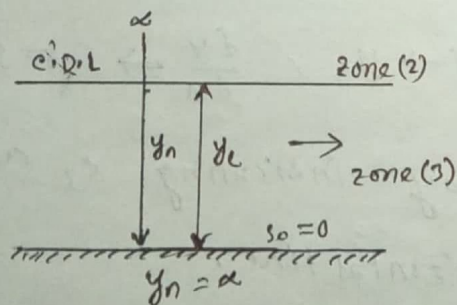 α
C.D.L zone(2)
yn yc
zone(3)
So=0
yn = α